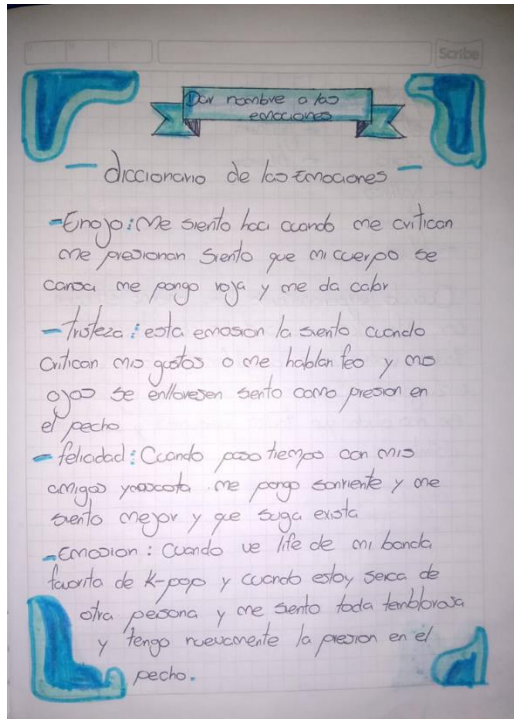 Scribe
Dar nombre a las
emociones
diccionario de las Emociones
-Enojo: Me siento haci cuando me critican
me presionan siento que mi cuerpo se
cansa me pongo roja y me da calor
- tristeza: esta emosion la siento cuando
critican mis gustos o me hablan feo y mis
ojos se enlloresen siento como presion en
el pecho
- felicidad: Cuando paso tiempo con mis
amigos y mascota me pongo sonriente y me
siento mejor y que suga exista
- Emosion: Cuando ve life de mi banda
favorita de K-pop y cuando estoy serca de
otra persona y me siento toda temblorosa
y tengo nuevamente la presion en el
pecho.